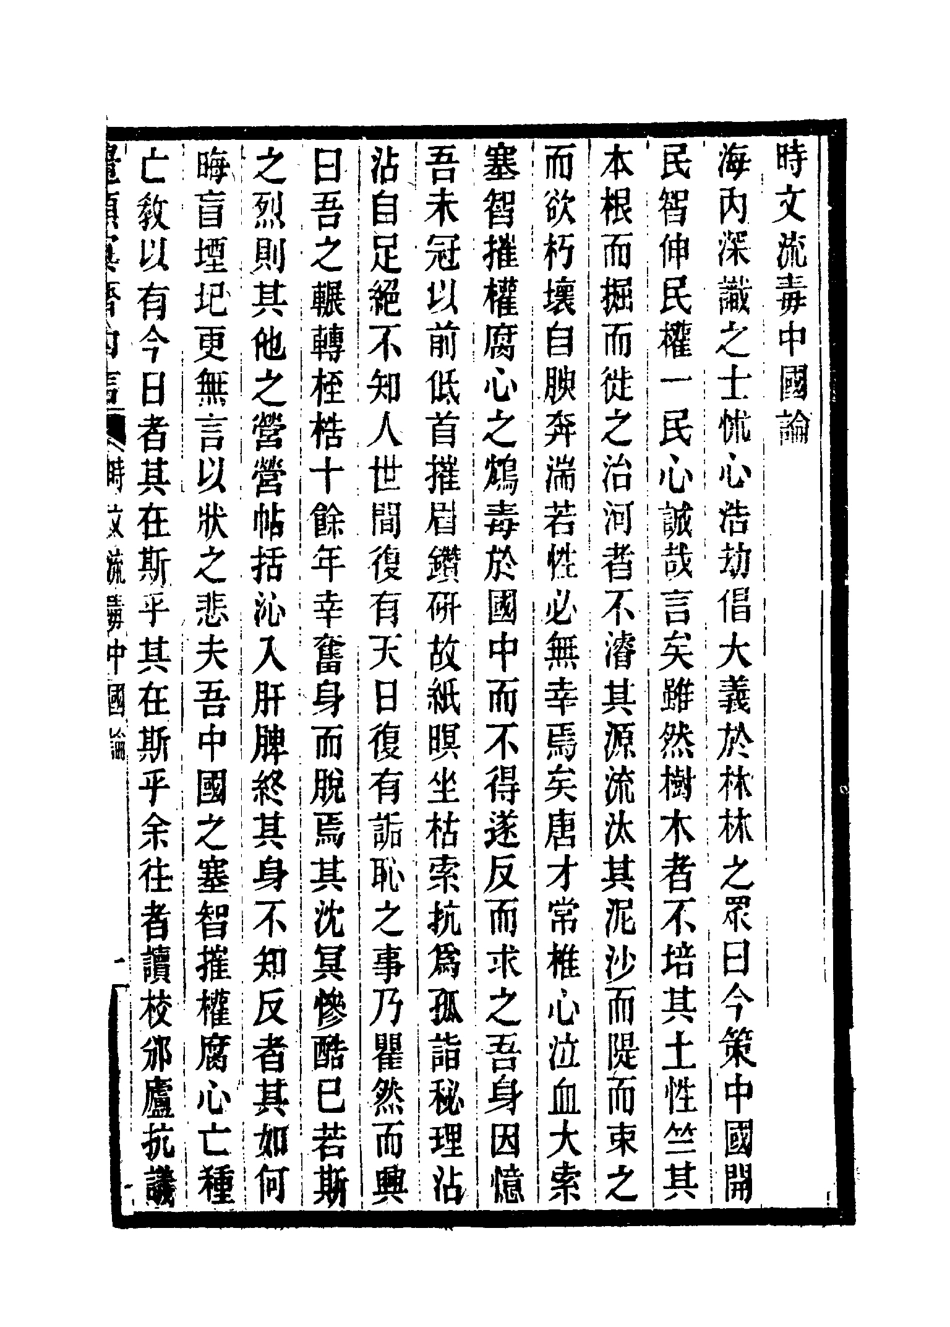 時文流毒中國論
海內深識之士怵心浩劫倡大義於林林之眾曰今策中國開
民智伸民權一民心誠哉言矣雖然樹木者不培其土性竺其
本根而掘而徙之治河者不濬其源流汰其泥沙而隄而束之
而欲朽壞自腴奔湍若性必無幸焉矣唐才常椎心泣血大索
塞智摧權腐心之鴆毒於國中而不得遂反而求之吾身因憶
吾未冠以前低首摧眉鑽研故紙瞑坐枯索抗爲孤詣秘理沾
沾自足絕不知人世間復有天日復有詬恥之事乃瞿然而興
曰吾之輾轉桎梏十餘年幸奮身而脫焉其沈冥慘酷已若斯
之烈則其他之營營帖括沁入肝脾終其身不知反者其如何
晦盲堙圮更無言以狀之悲夫吾中國之塞智摧權腐心亡種
亡敎以有今日者其在斯乎其在斯乎余往者讀校邠廬抗議
內言 時文流毒中國論 一